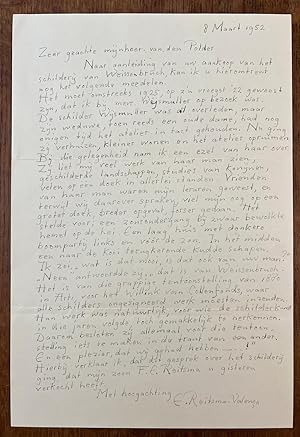 8 Maart 1952
Zeer geachte mijnheer van den Polder
Naar aanleiding van uw aankoop van het
schilderij van Weissenbruch, kan ik u hieromtrent
nog het volgende meedelen.
Het moet omstreeks 1925, op z'n vroegst '22 geweest
zijn, dat ik bij mevr. Wijsmuller op bezoek was.
De schilder Wijsmuller was al overleden maar
zijn weduwe, toen reeds een oude dame, had nog
altijd het atelier in tact gehouden. Nu ging
zij verhuizen, kleiner wonen en het atelier opruimen
Bij die gelegenheid nam ik een ezel van haar over.
Zij liet mij veel werk van haar man zien,
geschilderde landschappen, studies van konijnen,
velen op een doek in allerlei standen. Vrienden
van haar man waren mijn leraren geweest, en
terwijl wij daarover spraken, viel mijn oog op een
groter doek, breder opgevat, forser gedaan. Het
stelde voor: een zonsondergang bij zwaar bewolkte
hemel op de hei. Een laag huis met donkere
boompartij links en voor de zon. In het midden
een naar de kooi terugkerende kudde schapen.
Ik zei: "wat is dat mooi, is dat ook van uw man?"
"Neen" antwoordde zij, "dat is van Weissenbruch."
Het is van die grappige tentoonstelling van
in Arti, voor het Willink v. Collenfonds, waar
alle schilders ongesigneerd werk moesten inzenden.
Hun werk was natuurlijk, voor wie de schilders
in die jaren volgde toch gemakkelijk te herkennen.
Daarom besloten zij allemaal voor die tentoon-
stelling iets te maken in de trant van een ander.
En een plezier, dat wij gehad hebben
Hierbij verklaar ik, dat dit gesprek over het schilderij
ging, dat mijn zoon F. E. Roitsma u gisteren
verkocht heeft.
Met hoogachting
E. Roitsma-Valença